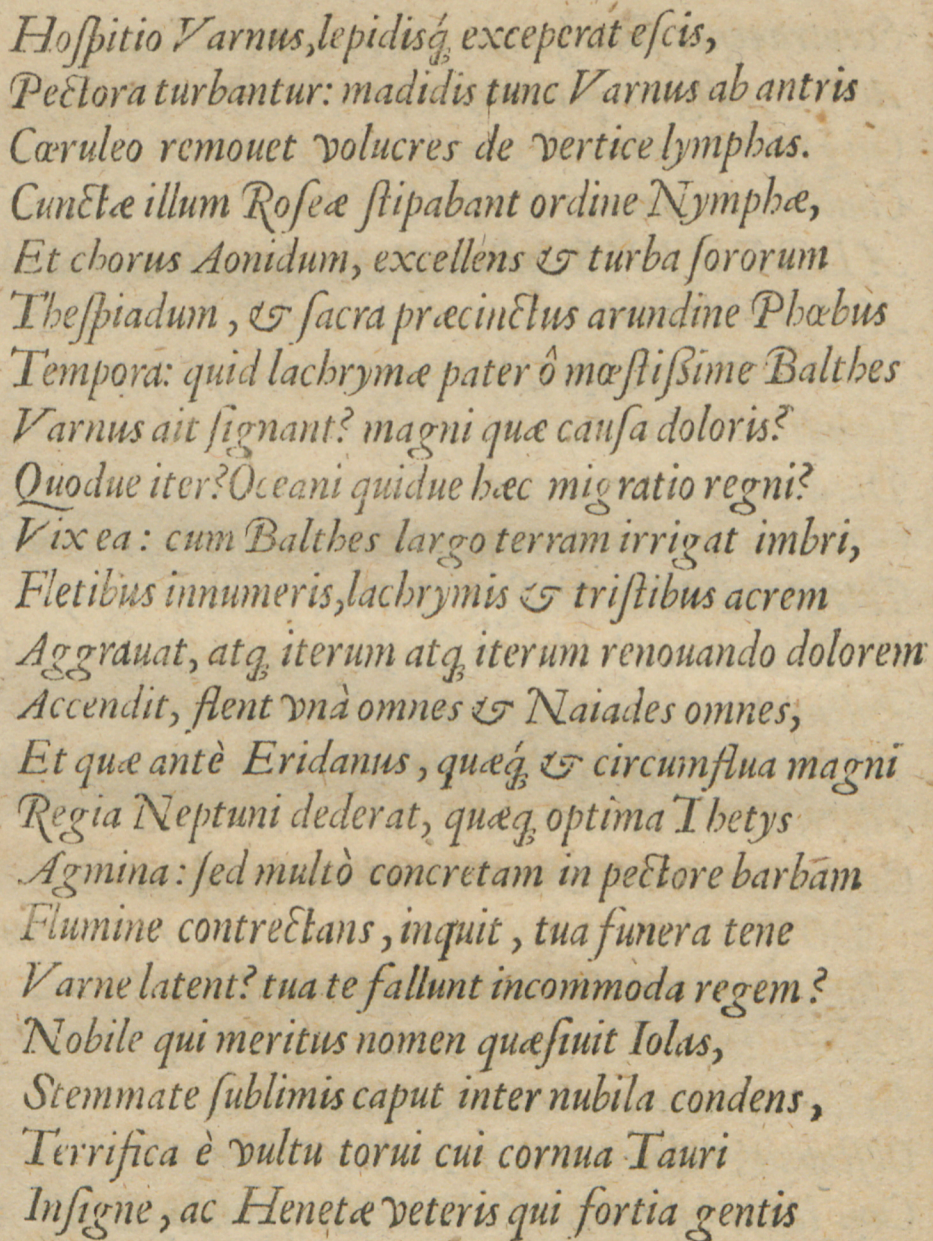 Hoſpitio Varnus, lepidisq́; exceperat eſcis,
Pectora turbantur: madidis tunc Varnus ab antris
Cœruleo remouet volucres de vertice lymphas.
Cunctæ illum Roſeæ ſtipabant ordine Nymphæ,
Et chorus Aonidum, excellens & turba ſororum
Theſpiadum, & ſacra præcinctus arundine Phœbus
Tempora: quid lachrymæ pater ô mœſtiſsime Balthes
Varnus ait ſignant? magni quæ cauſa doloris?
Quodue iter? Oceani quidue hæc migratio regni?
Vix ea: cum Balthes largo terram irrigat imbri,
Fletibus innumeris, lachrymis & triſtibus acrem
Aggrauat, atq; iterum atq; iterum renouando dolorem
Accendit, flent vnà omnes & Naiades omnes,
Et quæ antè Eridanus, quæq́; & circumflua magni
Regia Neptuni dederat, quæq; optima Thetys
Agmina: ſed multò concretam in pectore barbam
Flumine contrectans, inquit, tua funera tene
Varne latent? tua te fallunt incommoda regem?
Nobile qui meritus nomen quæſiuit Iolas,
Stemmate ſublimis caput inter nubila condens,
Terrifica è vultu torui cui cornua Tauri
Inſigne, ac Henetæ veteris qui fortia gentis